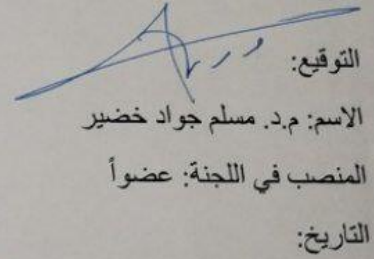 التوقيع:
الاسم: م.د. مسلم جواد خضير
المنصب في اللجنة: عضواً
التاريخ: